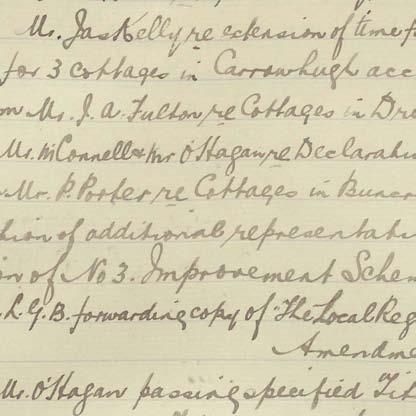 Mr. Jas Kelly re extension of time f
for 3 cottages in Carrowhugh acc
om Mr. J. A. Fulton re Cottages in Dr
Mr. McConnell & Mr O'Hagan re Declarati
Mr. P. Porter re Cottages in Buncr
tion of additional representati
on of No 3. Improvement Schem
L. G. B. forwarding copy of "The Local Reg
Amendme
Mr. O'Hagan passing specified Tit